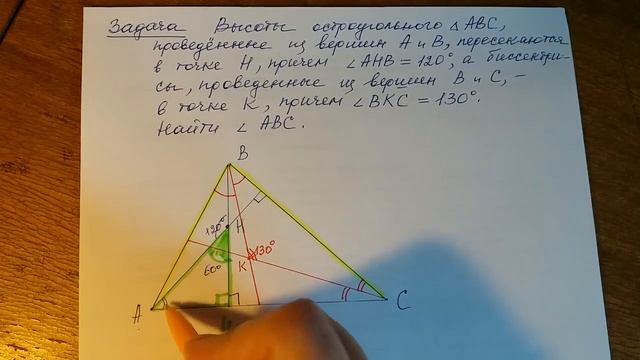 Задача Высоты остроугольного △ABC,
проведённые из вершин A и B, пересекаются
в точке H, причем ∠AHB = 120°, а биссектри-
сы, проведенные из вершин B и C, –
в точке K, причем ∠BKC = 130°.
Найти ∠ ABC.
B
120° H
K 130°
60°
A C